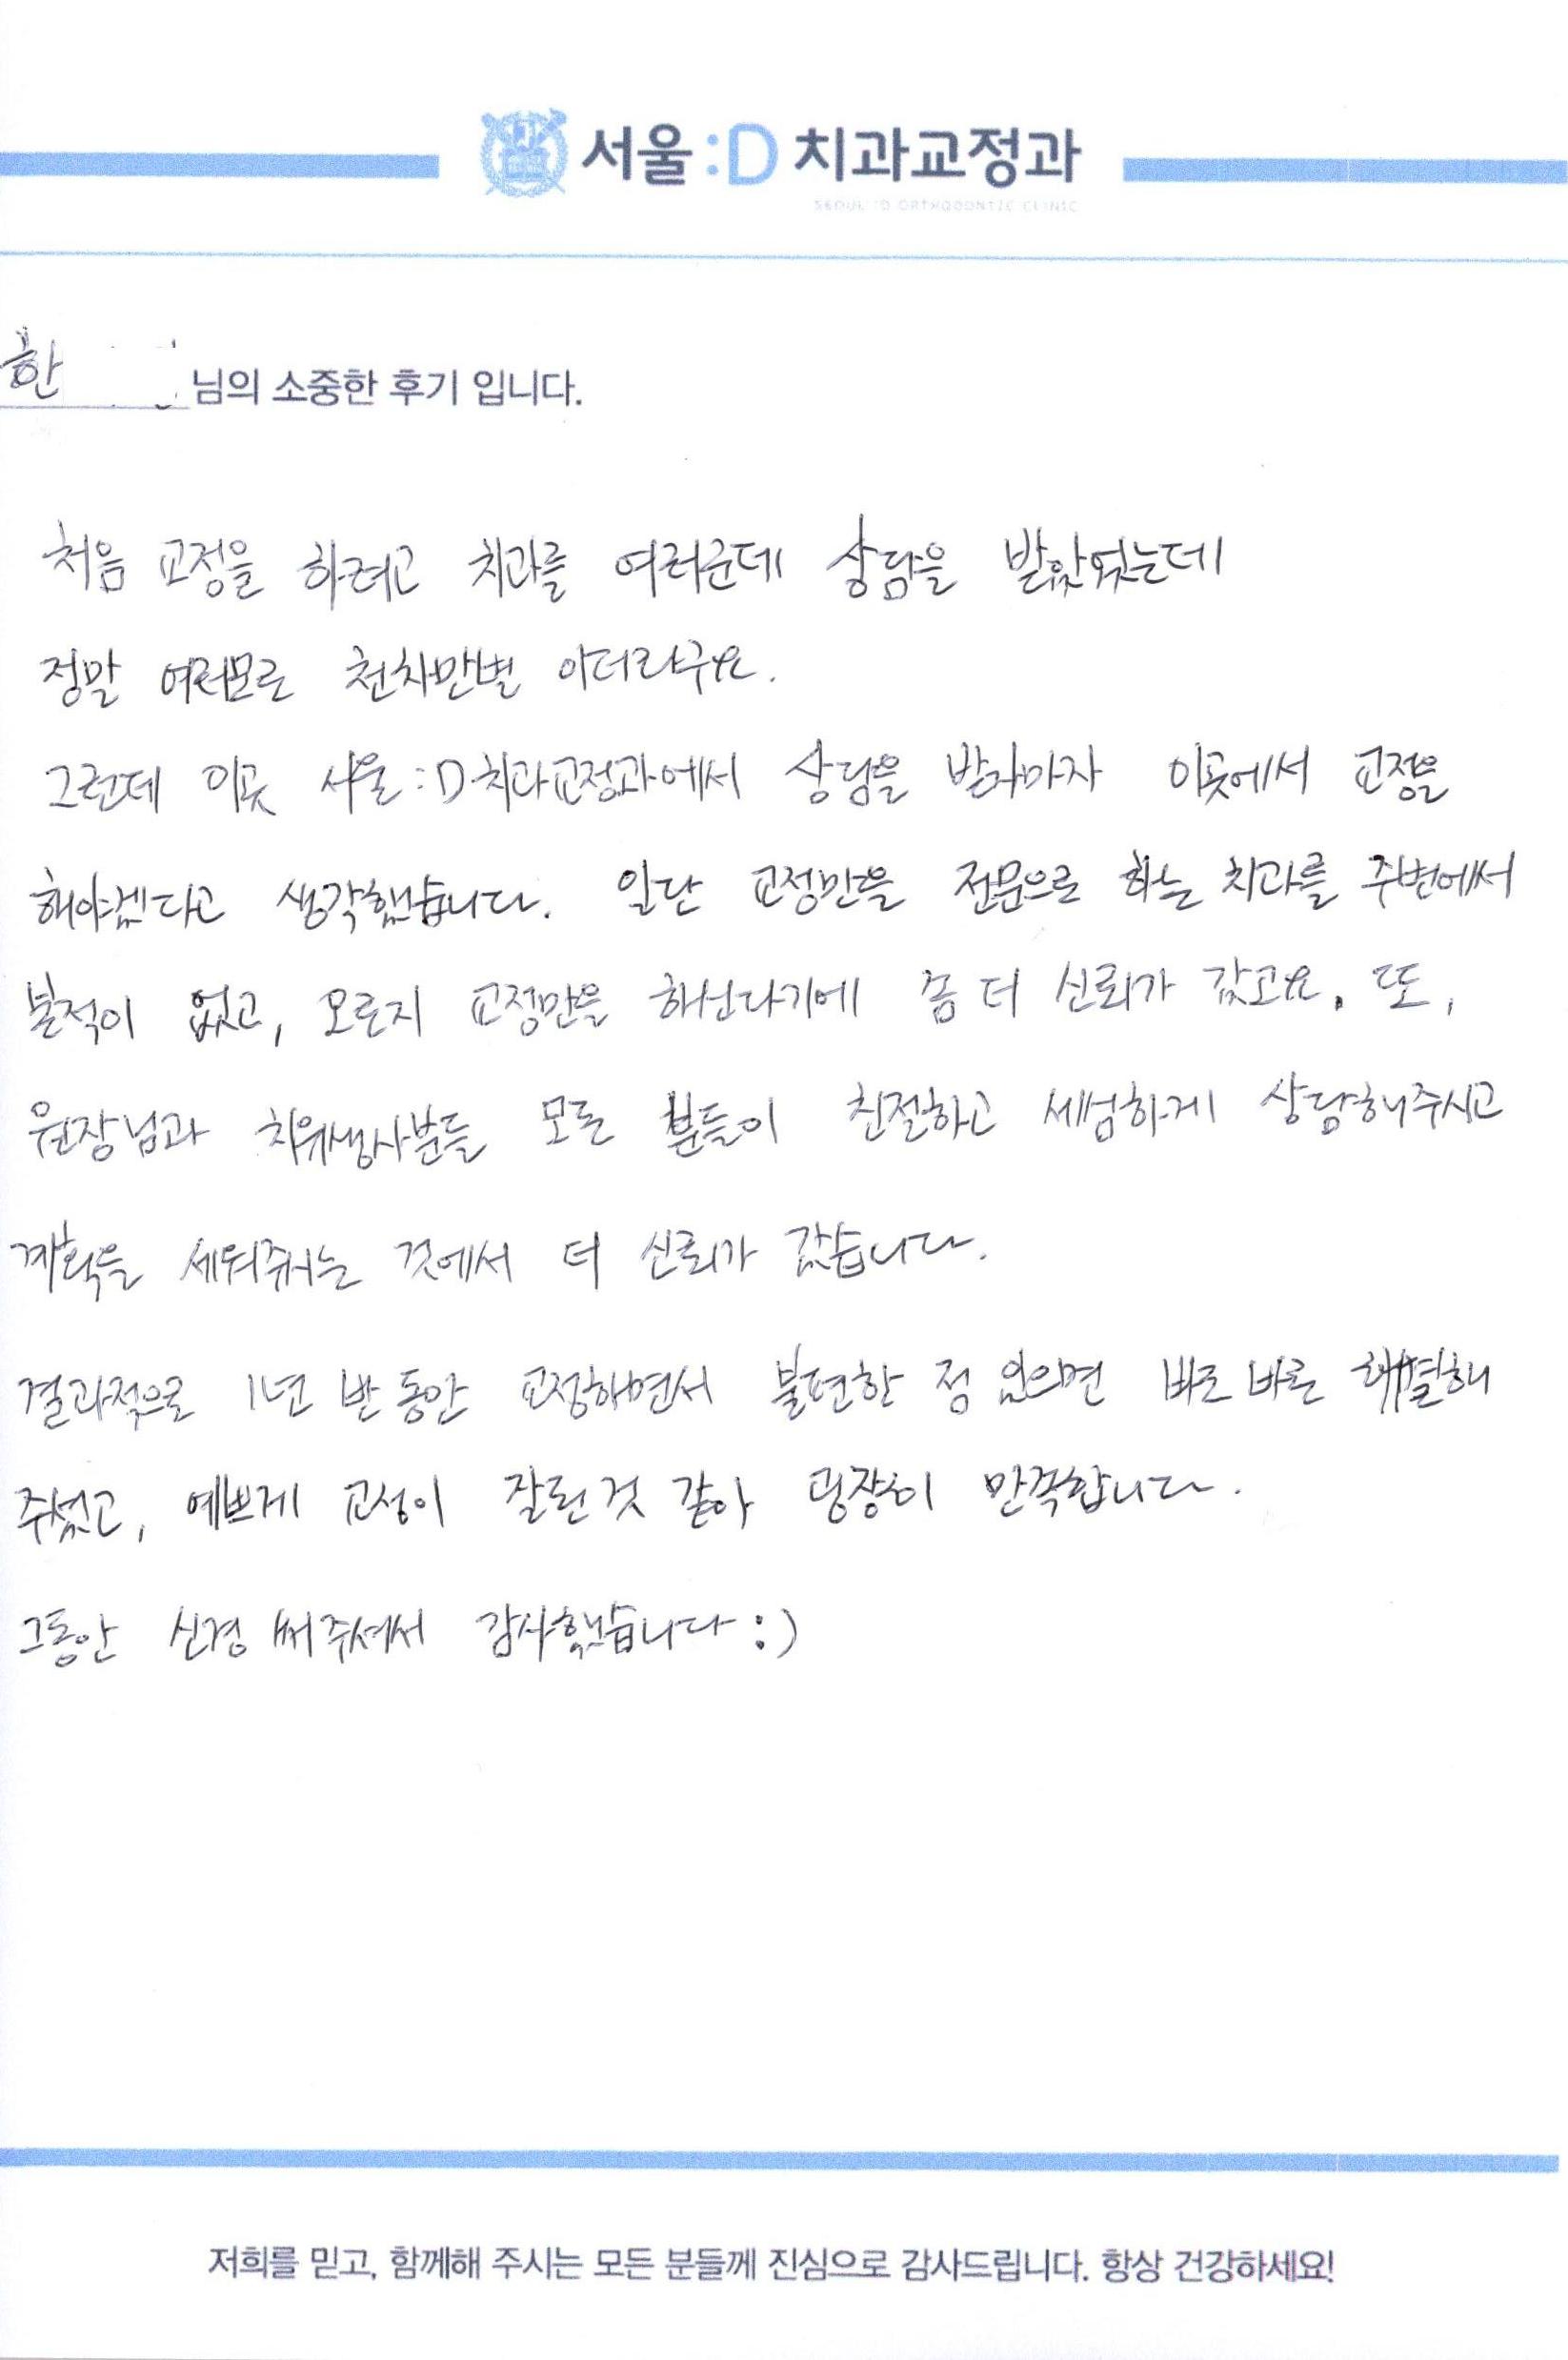 서울:D 치과교정과
SEOUL :D ORTHODONTIC CLINIC
한 님의 소중한 후기 입니다.
처음 교정을 하려고 치과를 여러군데 상담을 받았었는데
정말 여러모로 천차만별 이더라구요.
그런데 이곳 서울:D치과교정과에서 상담을 받자마자 이곳에서 교정을
해야겠다고 생각했습니다. 일단 교정만을 전문으로 하는 치과를 주변에서
본적이 없고, 오로지 교정만을 하신다기에 좀 더 신뢰가 갔고요. 또,
원장님과 치위생사분들 모든 분들이 친절하고 세심하게 상담해주시고
계획을 세워주시는 것에서 더 신뢰가 갔습니다.
결과적으로 1년 반 동안 교정하면서 불편한 점 있으면 바로 바로 해결해
주셨고, 예쁘게 교정이 잘된것 같아 굉장히 만족합니다.
그동안 신경 써주셔서 감사했습니다 :)
저희를 믿고, 함께해 주시는 모든 분들께 진심으로 감사드립니다. 항상 건강하세요!